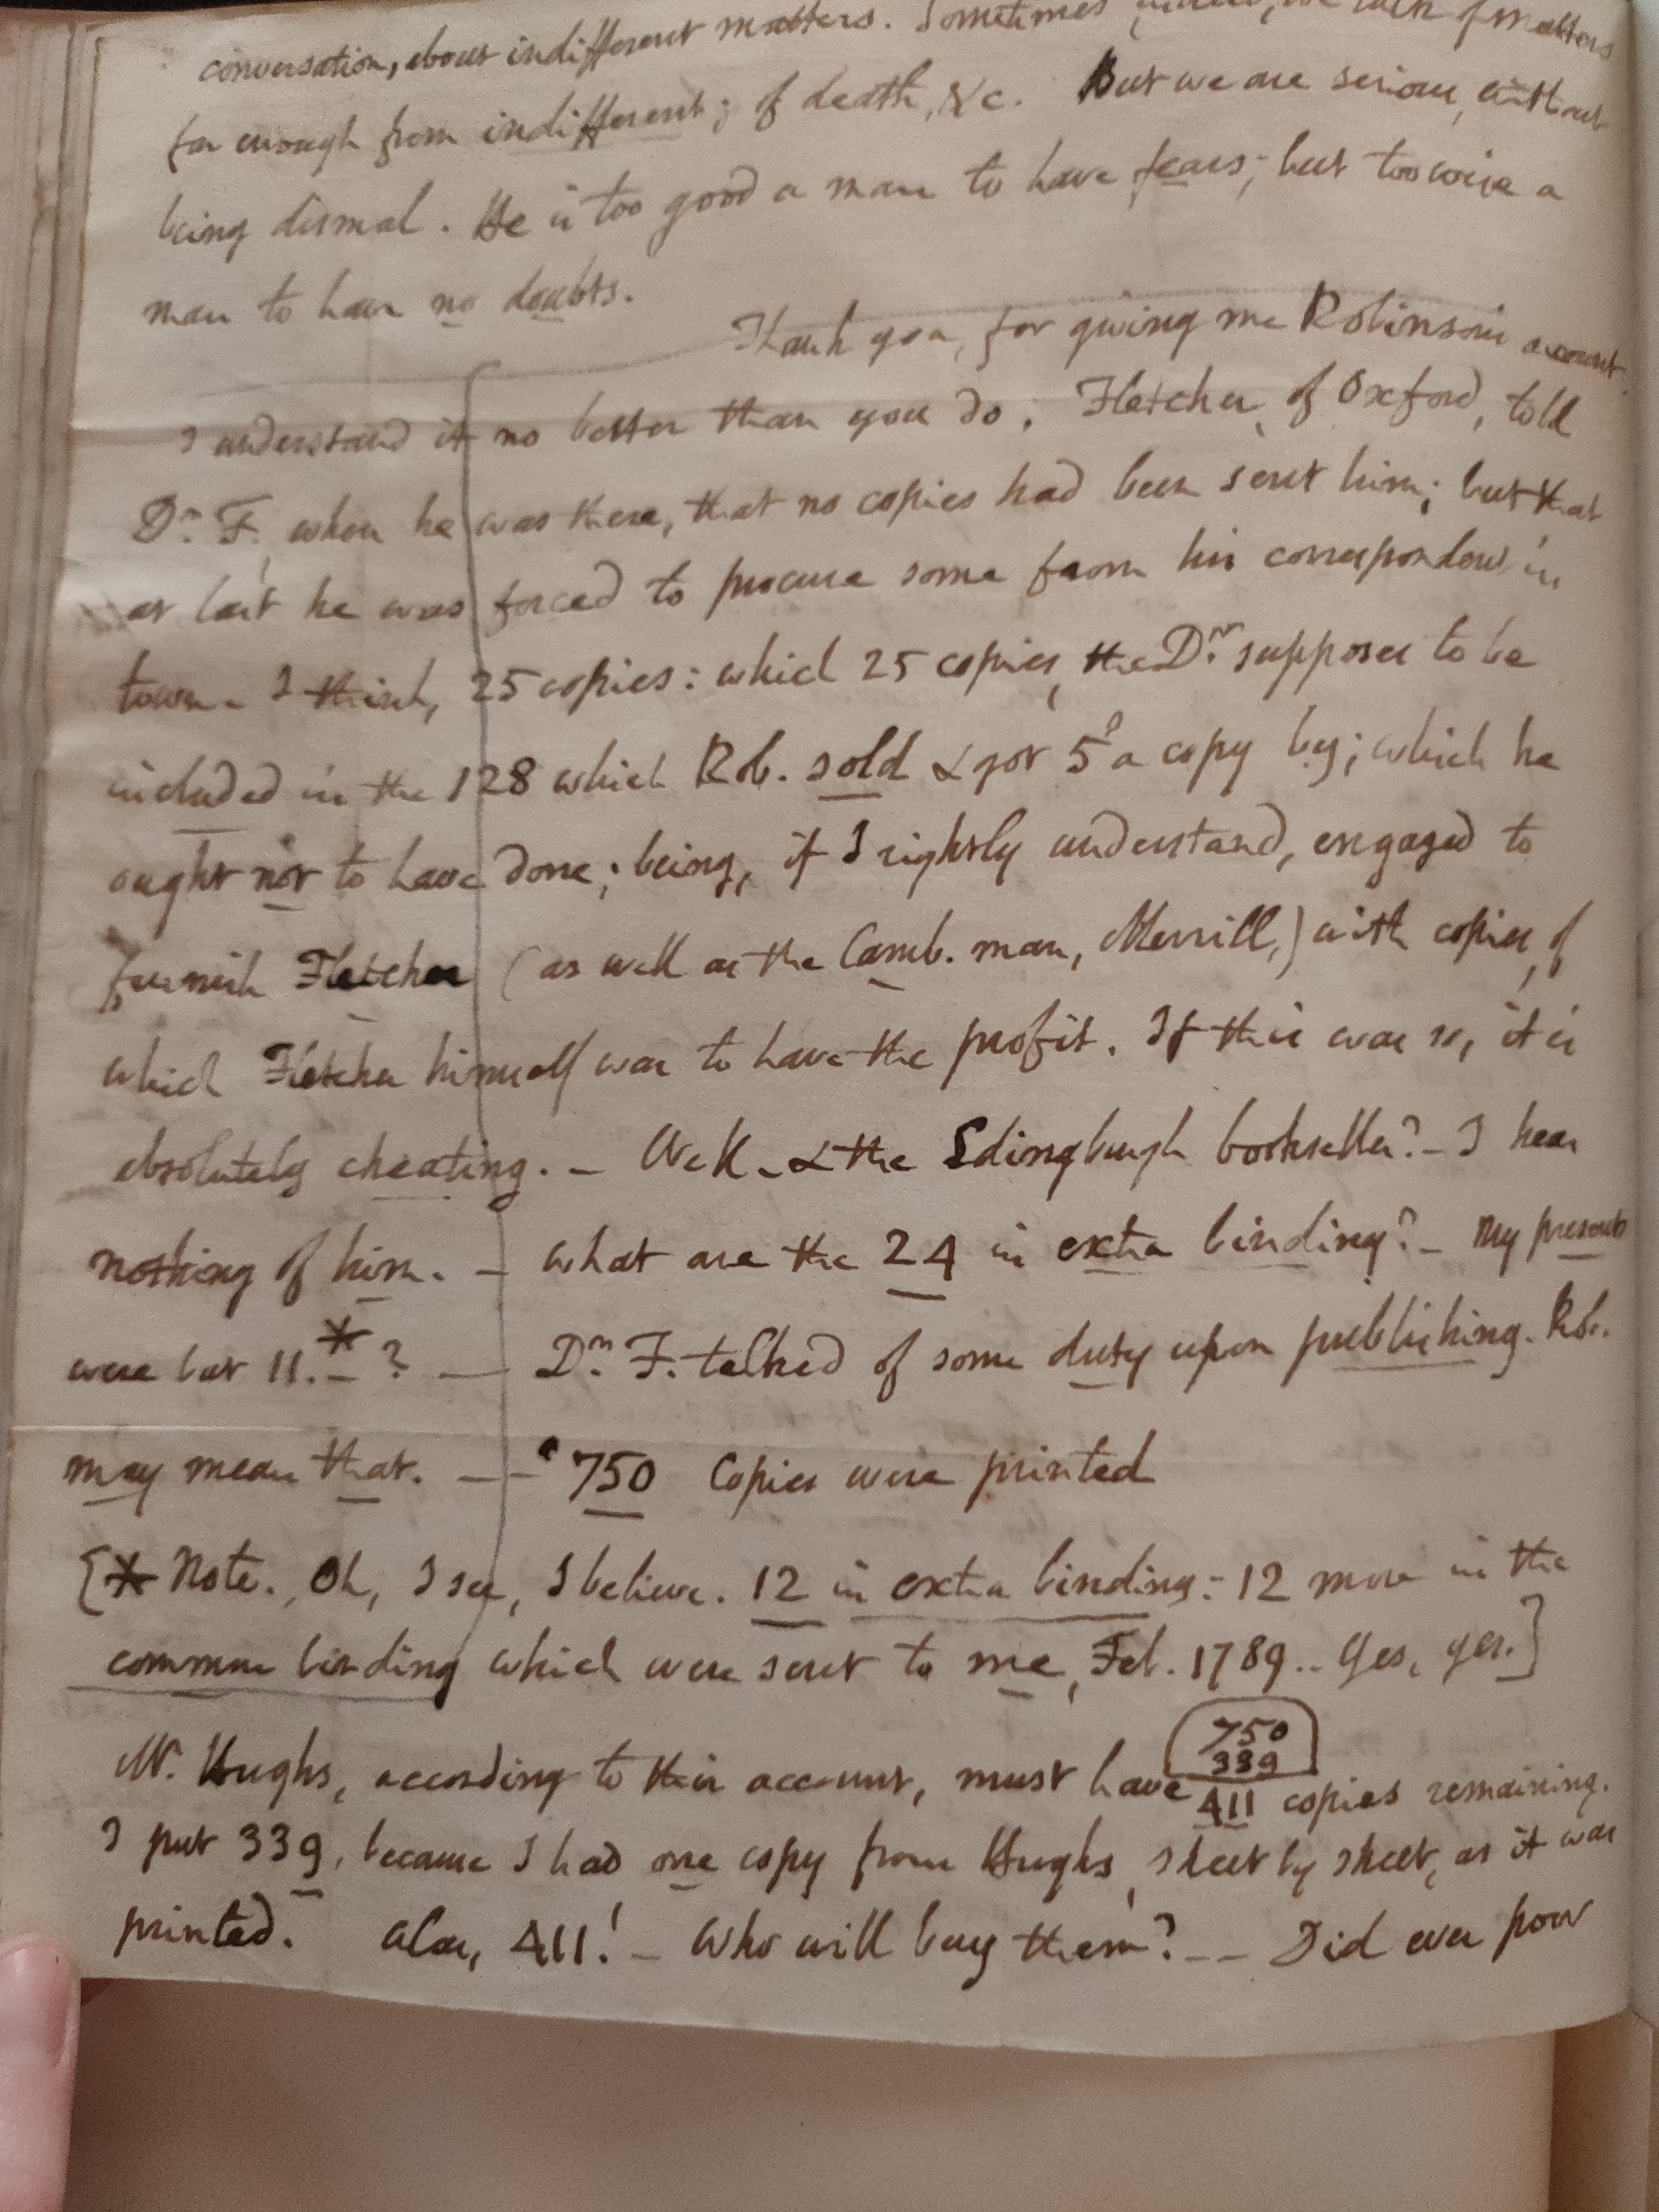 conversation, about indifferent matters. Sometimes, indeed, we talk of matters
far enough from indifferent; of death, &c. But we are serious, without
being dismal. He is too good a man to have fears; but too wise a
man to have no doubts.
Thank you, for giving me Robinson's account.
I understand it no better than you do. Fletcher, of Oxford, told
Dr. F. when he was there, that no copies had been sent him; but that
at last he was forced to procure some from his correspondent in
town - I think, 25 copies: which 25 copies, the Dr. supposes to be
included in the 128 which Rob. sold & got 5s a copy by; which he
ought not to have done; being, if I rightly understand, engaged to
furnish Fletcher (as well as the Camb. man, Merrill,) with copies, of
which Fletcher himself was to have the profit. If this was so, it is
absolutely cheating. - Well - & the Edingburgh bookseller? - I hear
nothing of him. - what are the 24 in extra binding? - My presents
were but 11.* - ? - Dr. F. talked of some duty upon publishing. Rob.
may mean that. - - 750 Copies were printed
[* Note. Oh, I see, I believe. 12 in extra binding: - 12 more in the
common binding which were sent to me, Feb. 1789 .. Yes, yes.]
750
339
Mr. Hughs, according to this account, must have 411 copies remaining.
I put 339, because I had one copy from Hughs, sheet by sheet, as it was
printed. Alas, 411! - Who will buy them? - - Did ever poor